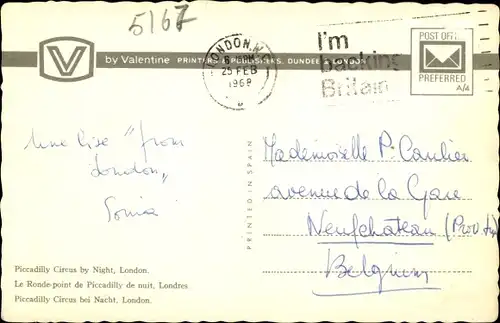 5167
by Valentine PRINTERS & PUBLISHERS, DUNDEE & LONDON
LONDON
25 FEB
1968
I'm
Backing
Britain
POST OFFICE
PREFERRED
A/4
Une bise "from
London"
Sonia
PRINTED IN SPAIN
Mademoiselle P.
avenue de la Gare
Neufchateau (Prov
Belgium
Piccadilly Circus by Night, London.
Le Ronde-point de Piccadilly de nuit, Londres
Piccadilly Circus bei Nacht, London.